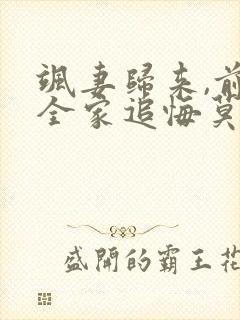 颯妻歸来,前
全家追悔莫
盛開的霸王花